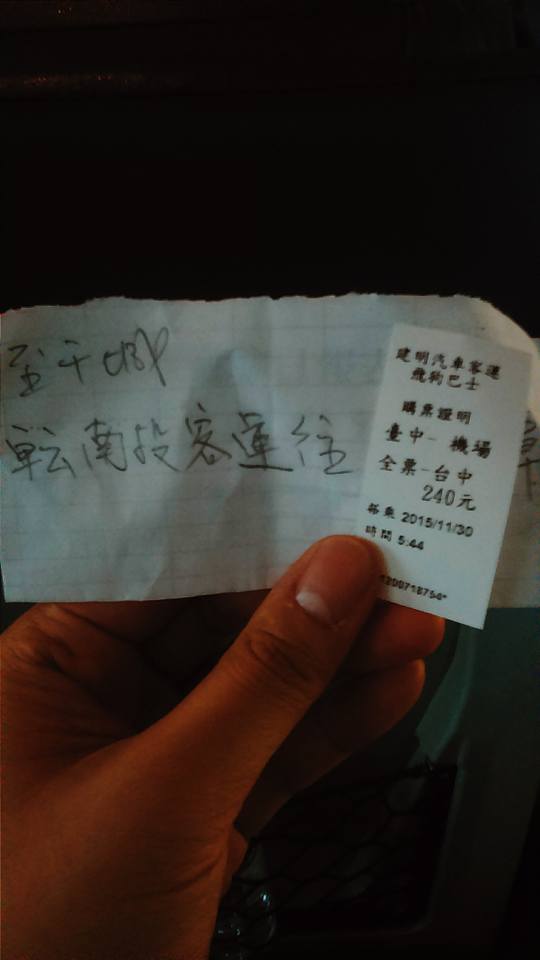 至干城
転南投客運往
建明汽車客運
飛狗巴士
購票證明
臺中- 機場
全票-台中
240元
搭乘 2015/11/30
時間 5:44
1200718754*